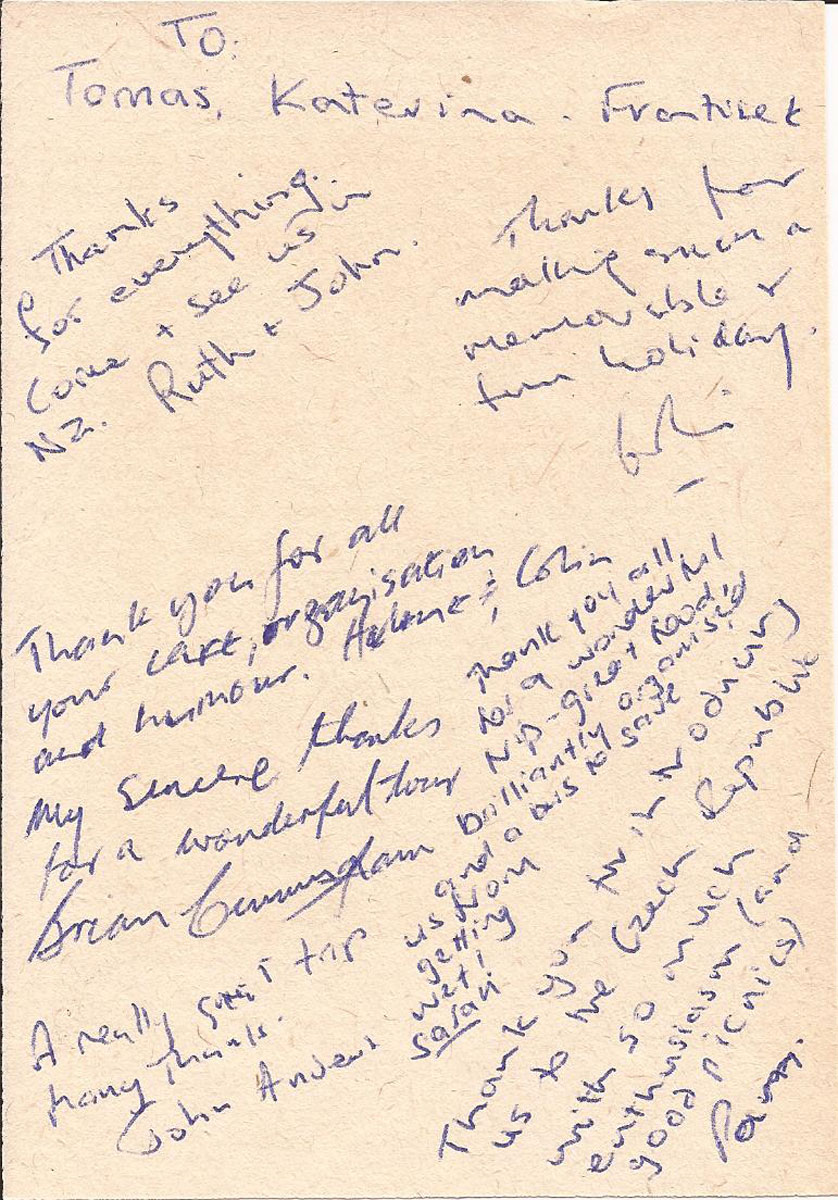 TO:
Tomas, Katerina. Frantisek
Thanks
for everything.
Come + see us in
NZ. Ruth + John.
Thanks for
making such a
memorable &
fun holiday.
Thank you for all
your care, organisation
and humour. Colin
My sincere thanks
for a wonderful tour
Brian Cunningham
Thank you all
for a wonderful
trip - great food,
brilliantly organised
and a bus to save
us from
getting
wet!
Sarah
A really great trip
many thanks.
John
Thank you for introducing
us to the Czech Republic
with so much
enthusiasm (and
good picnics)